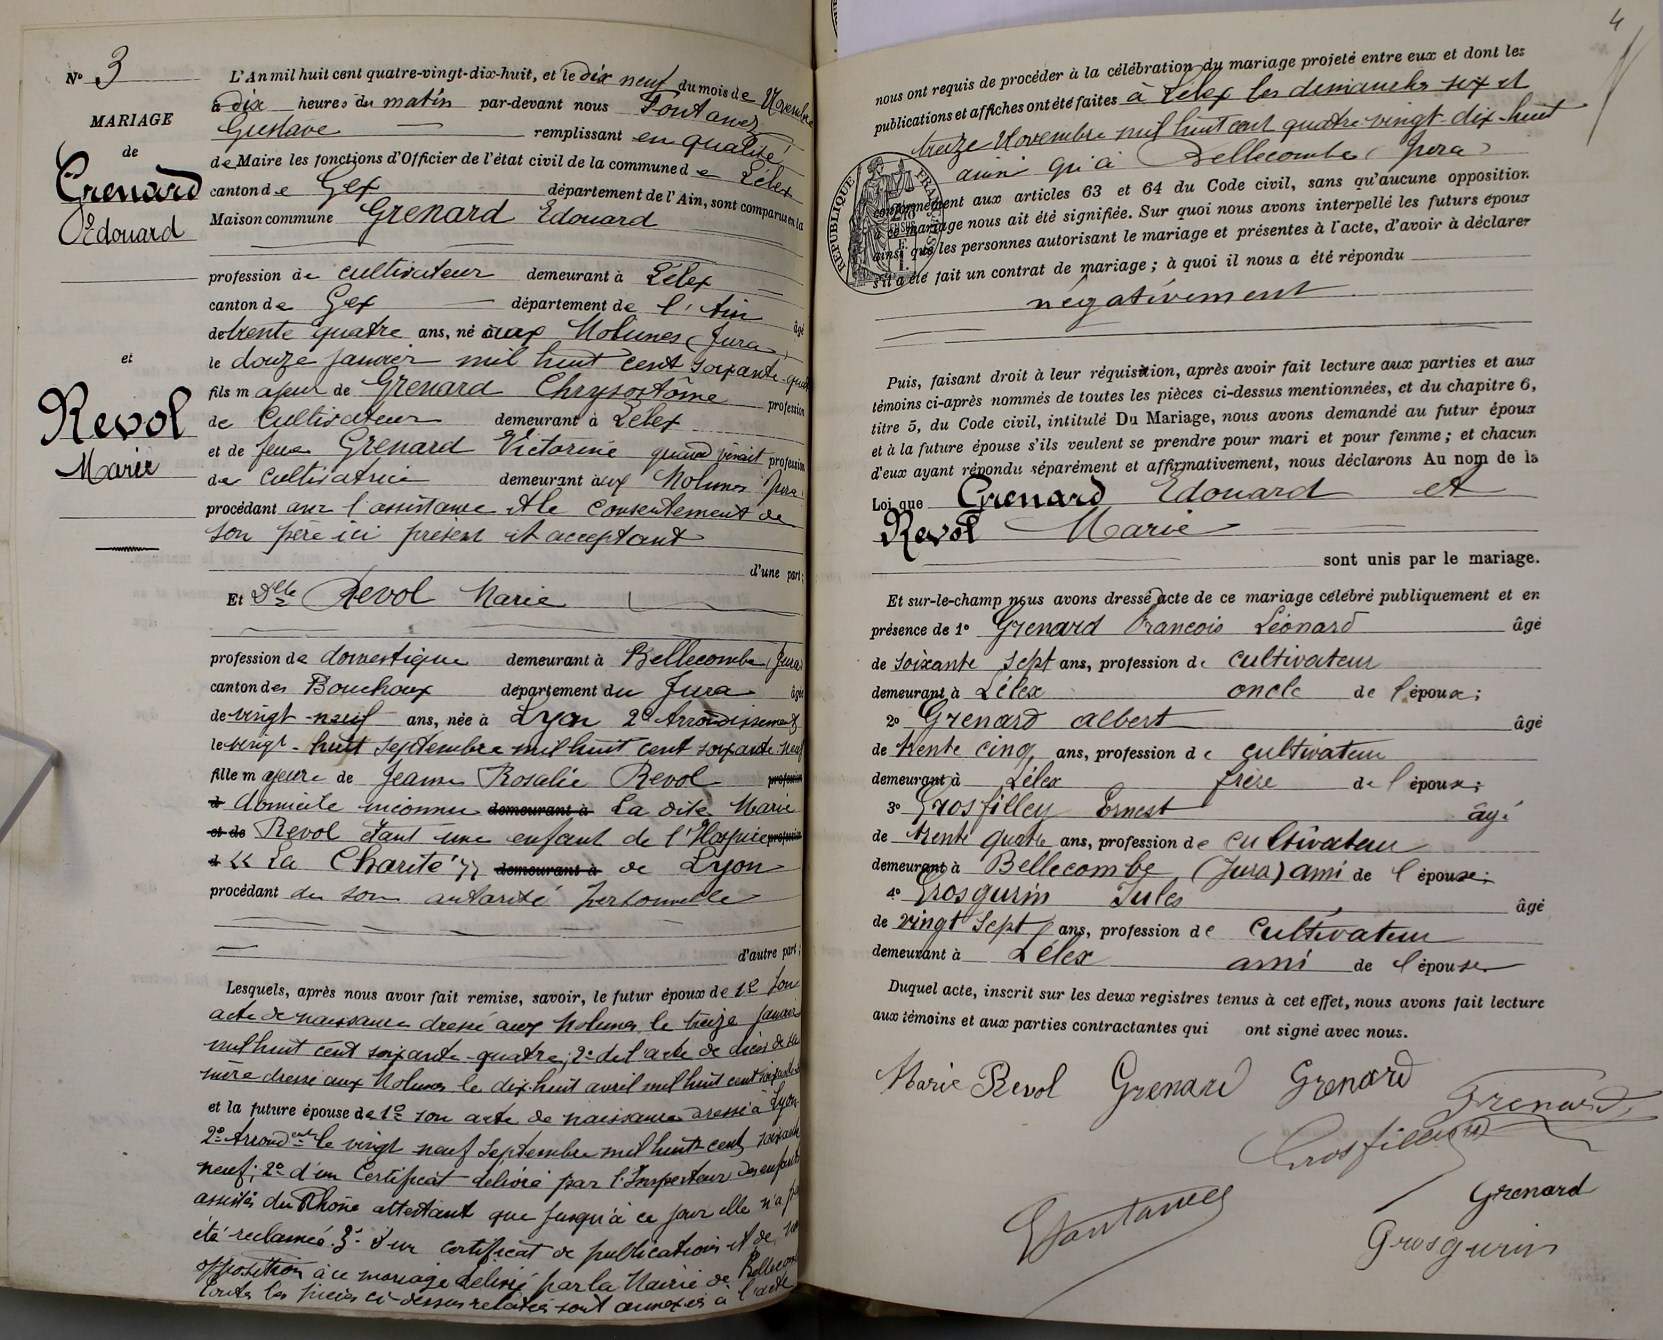 N° 3
MARIAGE
de
Grenard
Edouard
et
Revol
Marie
L'An mil huit cent quatre-vingt-dix-huit, et le dix neuf du mois de Novembre
à dix heures du matin par-devant nous Fontanez
Gustave remplissant en qualité
de Maire les fonctions d'Officier de l'état civil de la commune de Lélex
canton de Gex département de l'Ain, sont comparus en la
Maison commune Grenard Edouard
profession de cultivateur demeurant à Lélex
canton de Gex département de l'Ain âgé
de trente quatre ans, né aux Molunes (Jura)
le douze janvier mil huit cent soixante-quatre
fils majeur de Grenard Chrysostôme profession
de Cultivateur demeurant à Lélex
et de feue Grenard Victorine quand vivait profession
de Cultivatrice demeurant aux Molunes Jura
procédant avec l'assistance et le consentement de
son père ici présent et acceptant
d'une part;
Et Dlle Revol Marie
profession de domestique demeurant à Bellecombe (Jura)
canton des Bouchoux département du Jura âgée
de vingt-neuf ans, née à Lyon 2e Arrondissement
le vingt-huit septembre mil huit cent soixante-neuf
fille majeure de Jeanne Rosalie Revol profession
d domicile inconnu demeurant à La dite Marie
et de Revol étant une enfant de l'Hospice profession
d "La Charité" demeurant à de Lyon
procédant de son autorité personnelle
d'autre part;
Lesquels, après nous avoir fait remise, savoir, le futur époux de 1° son
acte de naissance dressé aux Molunes le treize janvier
mil huit cent soixante-quatre; 2° de l'acte de décès de sa
mère dressé aux Molunes le dix huit avril mil huit cent
et la future épouse de 1° son acte de naissance dressé à Lyon
2e Arrondent le vingt neuf septembre mil huit cent soixante
neuf; 2° d'un Certificat délivré par l'Inspecteur des enfants
assistés du Rhône attestant que jusqu'à ce jour elle n'a pas
été réclamée. 3° d'un certificat de publications et de non
opposition à ce mariage délivré par la Mairie de Bellecombe
toutes les pièces ci-dessus relatées sont annexées à l'acte
4
nous ont requis de procéder à la célébration du mariage projeté entre eux et dont les
publications et affiches ont été faites à Lélex les dimanches six et
treize Novembre mil huit cent quatre vingt-dix-huit
ainsi qu'à Bellecombe (Jura)
conformément aux articles 63 et 64 du Code civil, sans qu'aucune opposition
à ce mariage nous ait été signifiée. Sur quoi nous avons interpellé les futurs époux
ainsi que les personnes autorisant le mariage et présentes à l'acte, d'avoir à déclarer
s'il a été fait un contrat de mariage; à quoi il nous a été répondu
négativement
RÉPUBLIQUE FRANÇAISE
Puis, faisant droit à leur réquisition, après avoir fait lecture aux parties et aux
témoins ci-après nommés de toutes les pièces ci-dessus mentionnées, et du chapitre 6,
titre 5, du Code civil, intitulé Du Mariage, nous avons demandé au futur époux
et à la future épouse s'ils veulent se prendre pour mari et pour femme; et chacun
d'eux ayant répondu séparément et affirmativement, nous déclarons Au nom de la
Loi que Grenard Edouard et
Revol Marie
sont unis par le mariage.
Et sur-le-champ nous avons dressé acte de ce mariage célébré publiquement et en
présence de 1° Grenard Francois Léonard âgé
de soixante sept ans, profession de cultivateur
demeurant à Lélex oncle de l'époux;
2° Grenard Albert âgé
de trente cinq ans, profession de cultivateur
demeurant à Lélex frère de l'époux;
3° Grosfilley Ernest âgé
de trente quatre ans, profession de cultivateur
demeurant à Bellecombe (Jura) ami de l'épouse;
4° Grosgurin Jules âgé
de vingt sept ans, profession de cultivateur
demeurant à Lélex ami de l'épouse
Duquel acte, inscrit sur les deux registres tenus à cet effet, nous avons fait lecture
aux témoins et aux parties contractantes qui ont signé avec nous.
Marie Revol Grenard Grenard
Grenard
Grosfilley
Grenard
Fontanez
Grosgurin